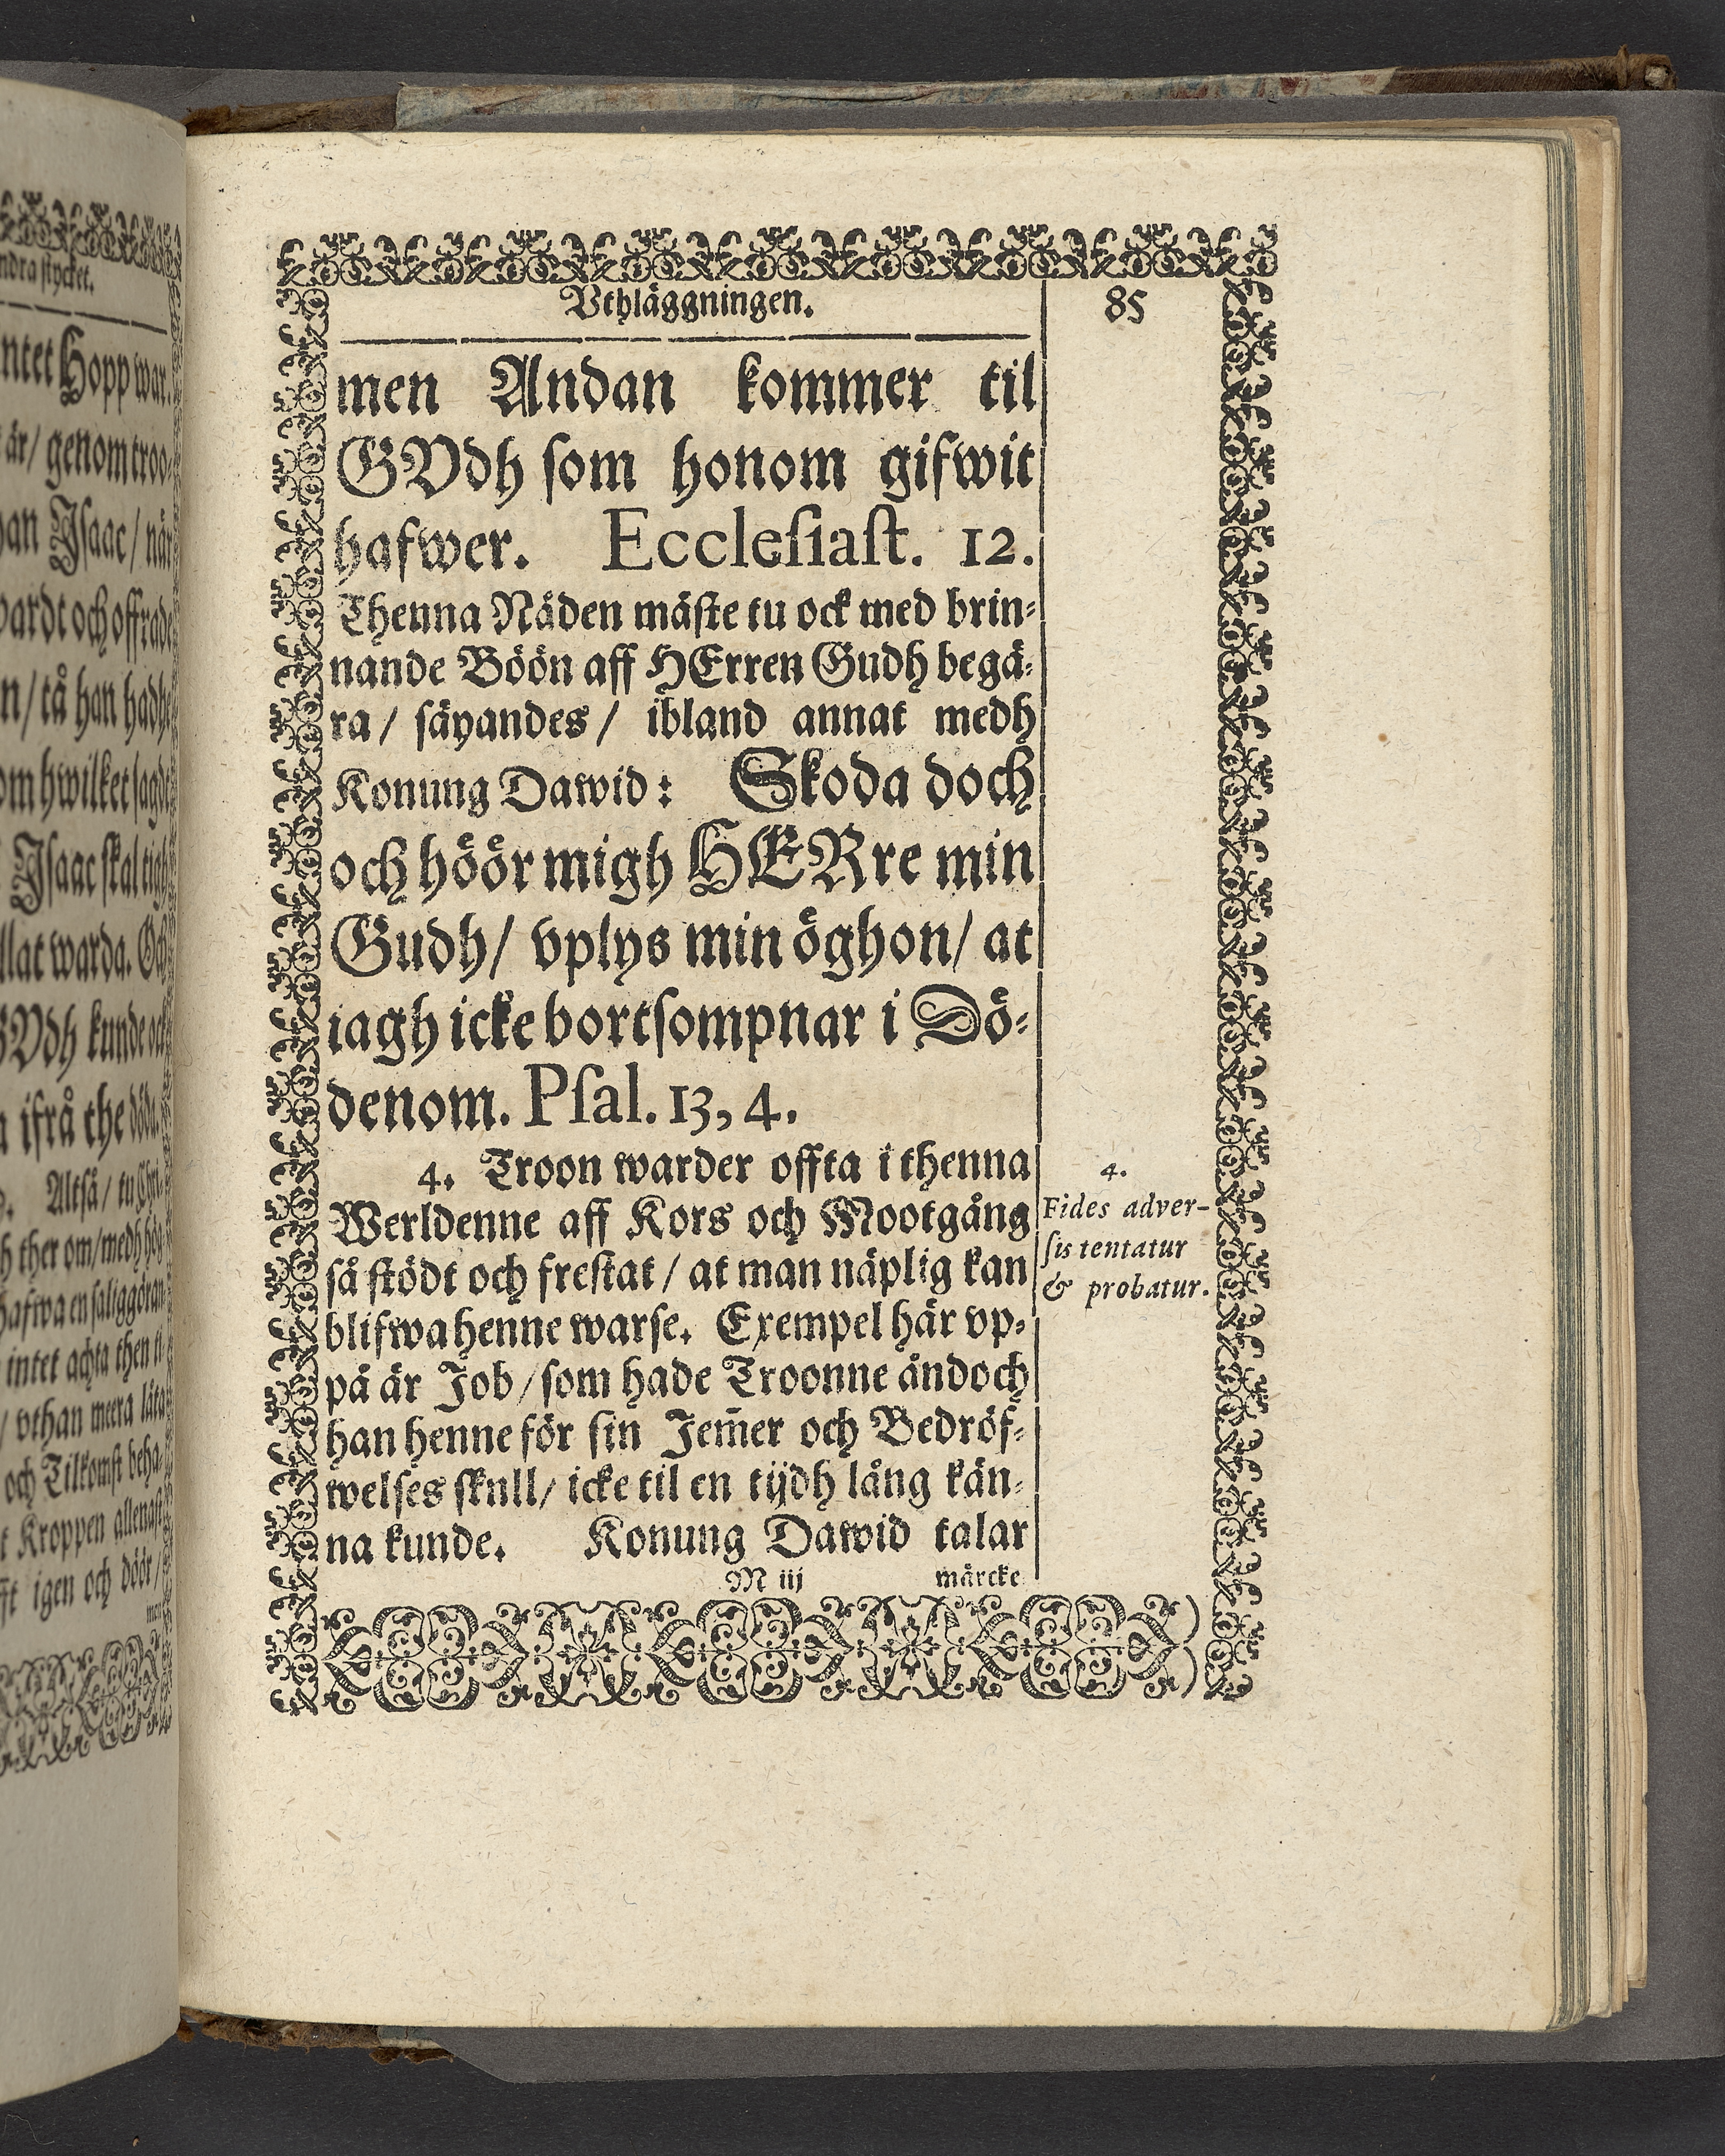 ndra stycket.
ntet Hopp war.
är/ genom troo-
han Isaac/ när
wardt och offrade
n/ tå han hadhe
om hwilket sagdt
Isaac skal tigh
llat warda. Och
GVdh kunde ock
ifrå the döda.
Altså/ tu Chri-
h ther om/ medh hög
hafwa en saliggöran
intet achta then ti
/ vthan meera låta
och Tilkomst beha-
t Kroppen allenast
fft igen och döör/
men
Vthläggningen. 85
men Andan kommer til
GVdh som honom gifwit
hafwer. Ecclesiast. 12.
Thenna Nåden måste tu ock med brin-
nande Böön aff HErren Gudh begä-
ra/ säyandes/ ibland annat medh
Konung Dawid: Skoda doch
och höör migh HERre min
Gudh/ vplys min öghon/ at
iagh icke bortsompnar i Dö-
denom. Psal. 13, 4.
4. Troon warder offta i thenna
Werldenne aff Kors och Mootgång
så stödt och frestat/ at man näplig kan
blifwa henne warse. Exempel här vp-
på är Job/ som hade Troonne ändoch
han henne för sin Jem̃er och Bedröf-
welses skull/ icke til en tijdh lång kän-
na kunde. Konung Dawid talar
M iij märcke
4.
Fides adver-
sis tentatur
& probatur.